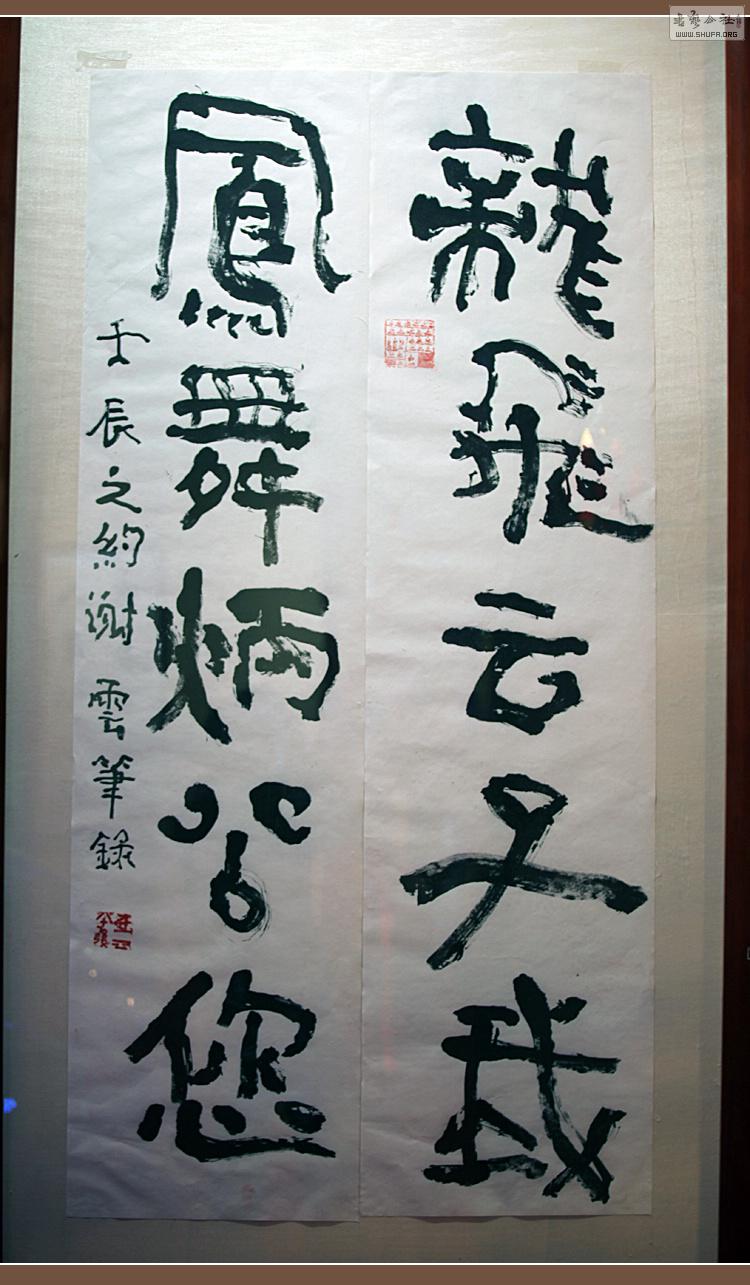 龍飛云子我
鳳舞炳公您
壬辰之約謝雲筆錄
书艺公社
WWW.SHUFA.ORG